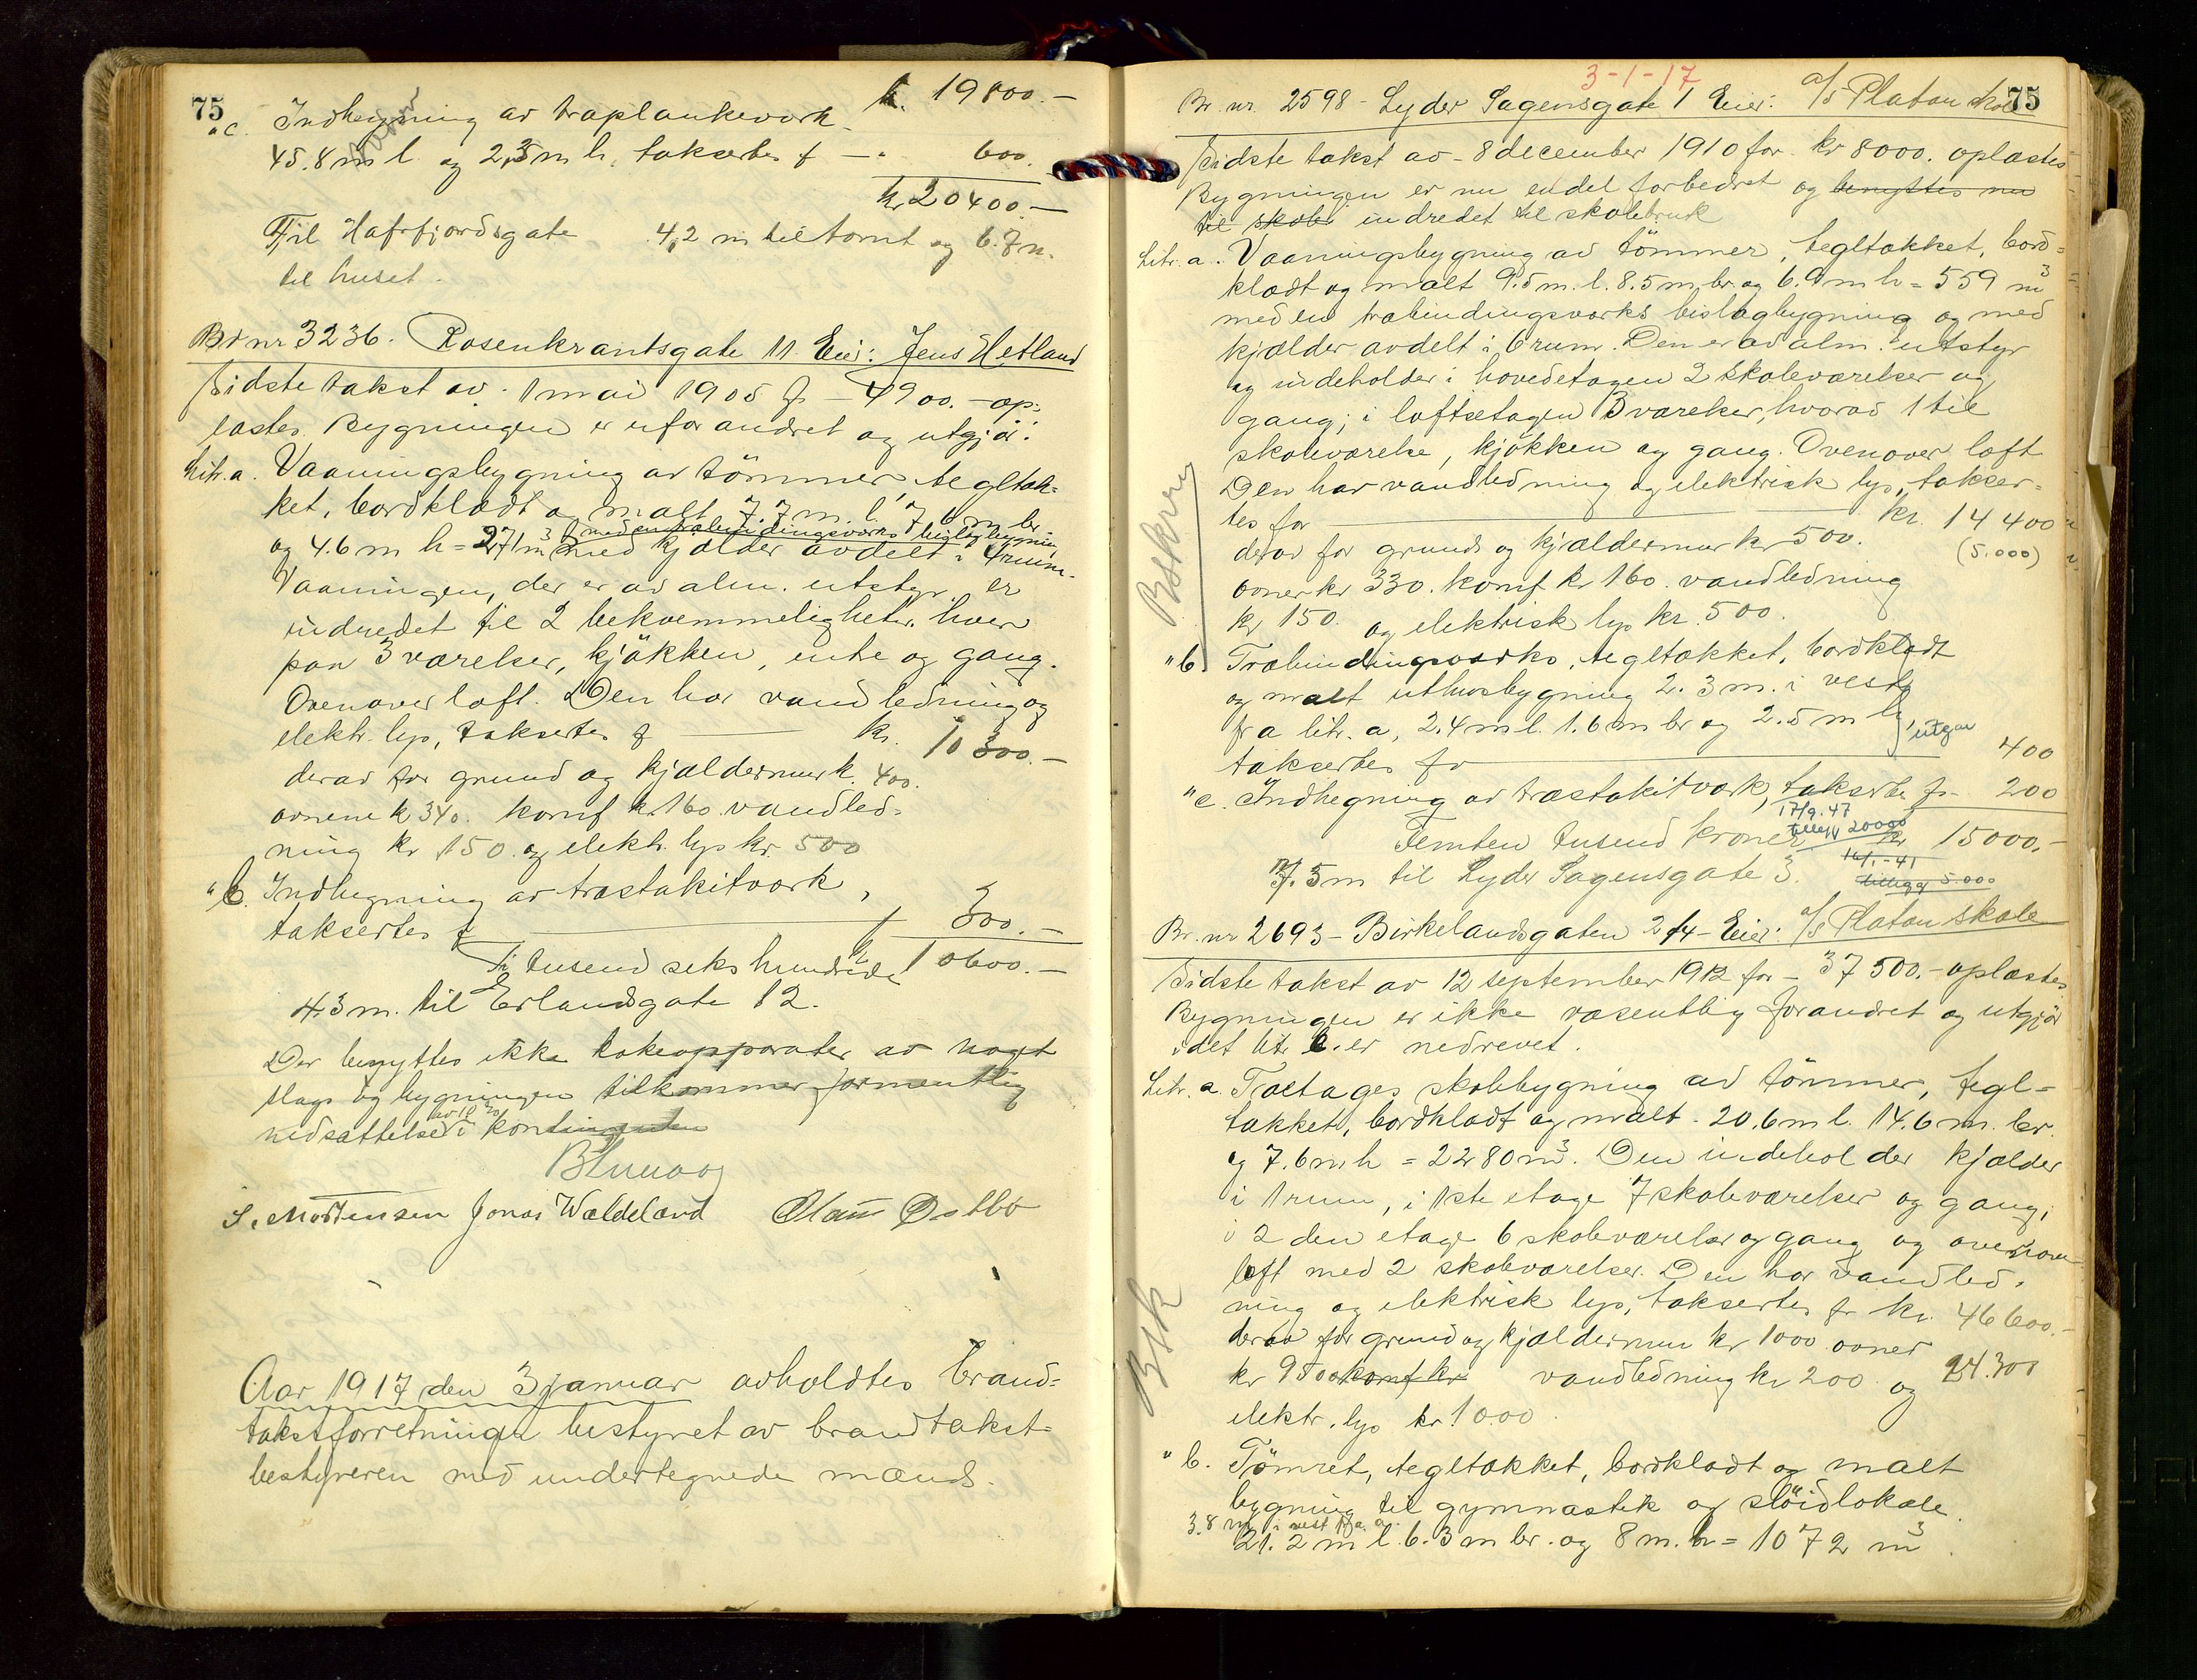 75
kr. 19800.-
"c. Indhegning av træplankeverk
45.8 m l. og 2,5 m h. takseres f - " 600.
kr 20400.-
Til Hafrsfjordsgate 4,2 m til tomt og 6.7 m.
til huset.
Br nr 3236. Rosenkrantsgate 11. Eier: Jens Hetland
Sidste takst av 1 mai 1905 fr - 4900.- op-
læstes. Bygningen er uforandret og utgjör:
Litr. a. Vaaningsbygning av tömmer, tegltæk-
ket, bordklædt og malt 7.7 m. l. 7.6 m br
med en træbindingsverks bislagbygning
og 4.6 m h = 271 m³ med kjælder avdelt i 4 rum.
Vaaningen, der er av alm. utstyr, er
indredet til 2 bekvemmeligheter, hver
paa 3 værelser, kjökken, entre og gang.
Ovenover loft. Den har vandledning og
elektr. lys, takseres f kr. 10300.-
derav for grund og kjældermur k. 400.
ovnene k 340. komf k. 160. vandled-
ning kr 150. og elektr. lys kr. 500
"b. Indhegning av træstakitverk,
takseres f 300.-
Ti tusend seks hundrede kr 10600.-
4.3 m. til Erlandsgate 12.
Der benyttes ikke kokeapparater av noget
slags og bygningen tilkommer formentlig
av 10 %
nedsættelse i kontingenten
S. Mortensen Jonas Wældeland Olaus Dalbo
Aar 1917 den 3 januar avholdtes brand-
takstforretninger bestyret av brandtakst-
bestyreren med undertegnede mænd.
3-1-17
75
Br. nr. 2598 - Lyder Sagensgate 1 Eier: A/S Platou skole
Sidste takst av - 8 december 1910 for kr 8000. oplæstes
Bygningen er nu endel forbedret og benyttes nu
til skole indredet til skolebruk
Litr. a. Vaaningsbygning av tömmer, tegltækket, bord-
klædt og malt 9.5 m. l. 8.5 m. br. og 6.9 m h = 559 m³
med en træbindingsverks bislagbygning og med
kjælder avdelt i 6 rum. Den er av alm. utstyr
og indeholder i hovedetagen 2 skoleværelser og
gang; i loftsetagen 3 værelser, hvorav 1 til
skoleværelse, kjökken og gang. Ovenover loft
Den har vandledning og elektrisk lys, takser-
tes for kr. 14400
derav for grund og kjældermur kr 500. (5.000)
ovner kr 330. komf k 160. vandledning
kr 150. og elektrisk lys kr. 500.
"b. Træbindingsverks, tegltækket, bordklædt
og malt uthusbygning 2.3 m. i vest
fra litr. a, 2.4 m l. 1.6 m br og 2.5 m h, utgaar
takseres fr 400
"c. Indhegning av træstakitverk, takseres fr - 200
17/9. 47
tillegg 20000
Femten tusend kroner kr 15000.-
16/1-41
tillegg 5.000
7.5 m til Lyder Sagensgate 3.
Br. nr 2693 - Birkelandsgaten 2/4 - Eier: A/S Platou skole
Sidste takst av 12 september 1912 for - 37500.- oplæstes
Bygningen er ikke væsentlig forandret og utgjör
idet litr c. er nedrevet.
Litr. a. Toetages skolebygning av tömmer, tegl-
tækket, bordklædt og malt. 20.6 m l. 14.6 m. br.
og 7.6 m h = 2280 m³. Den indeholder kjælder
i 1 rum, i 1ste etage 7 skoleværelser og gang,
i 2 den etage 6 skoleværelser og gang og ovenover
loft med 2 skoleværelser. Den har vandled-
ning og elektrisk lys, takseres fr kr. 46600.-
derav for grund og kjældermur kr 1000 ovner
kr 950 komf kr vandledning kr 200. og 24.300
elektr. lys kr 1000.
"b. Tömret, tegltækket, bordklædt og malt
bygning til gymnastik og slöidlokale.
3.8 m i vest fra a.
21.2 m l. 6.3 m br. og 8 m. h = 1072 m³.